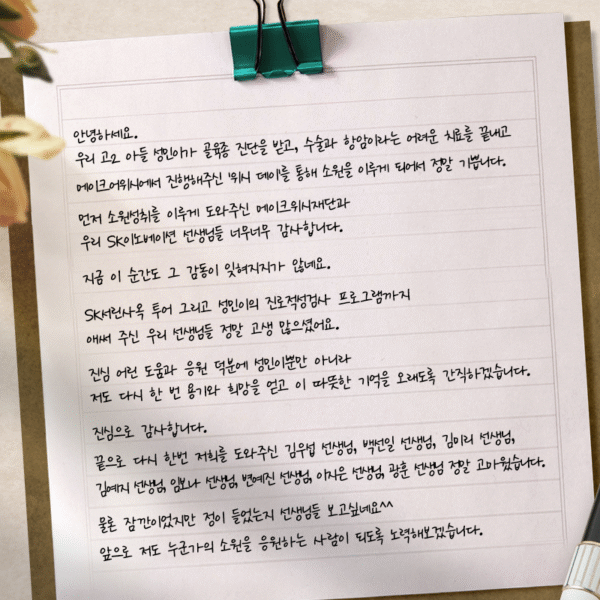 안녕하세요.
우리 고2 아들 성인이가 골육종 진단을 받고, 수술과 항암이라는 어려운 치료를 끝내고
메이크어위시에서 진행해주신 '위시 데이'를 통해 소원을 이루게 되어서 정말 기쁩니다.
먼저 소원성취를 이루게 도와주신 메이크위시재단과
우리 SK이노베이션 선생님들 너무너무 감사합니다.
지금 이 순간도 그 감동이 잊혀지지가 않네요.
SK서린사옥 투어 그리고 성인이의 진로적성검사 프로그램까지
애써 주신 우리 선생님들 정말 고생 많으셨어요.
진심 어린 도움과 응원 덕분에 성인이뿐만 아니라
저도 다시 한 번 용기와 희망을 얻고 이 따뜻한 기억을 오래도록 간직하겠습니다.
진심으로 감사합니다.
끝으로 다시 한번 저희를 도와주신 김우섭 선생님, 백선일 선생님, 김미리 선생님,
김예지 선생님, 임보나 선생님, 변예진 선생님, 이지은 선생님, 광훈 선생님 정말 고마웠습니다.
물론 잠깐이었지만 정이 들었는지 선생님들 보고싶네요^^
앞으로 저도 누군가의 소원을 응원하는 사람이 되도록 노력해보겠습니다.